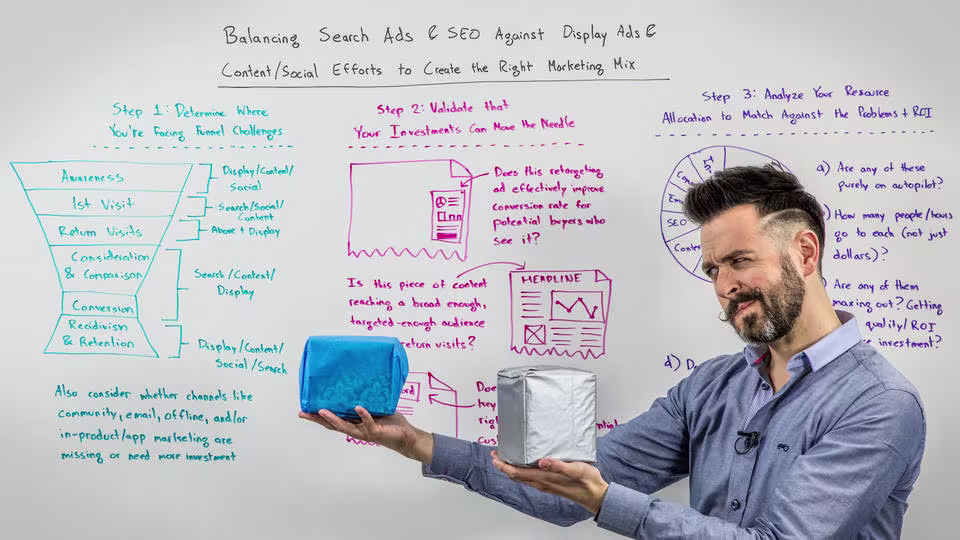 Balancing Search Ads & SEO Against Display Ads &
Content/Social Efforts to Create the Right Marketing Mix
Step 1: Determine Where
You're Facing Funnel Challenges
Awareness
Display/Content/
Social
1st Visit
Search/Social/
Content
Return Visits
Above + Display
Consideration
& Comparison
Search/Content/
Display
Conversion
Recidivism
& Retention
Display/Content/
Social/Search
Also consider whether channels like
community, email, offline, and/or
in-product/app marketing are
missing or need more investment
Step 2: Validate that
Your Investments Can Move the Needle
Does this retargeting
ad effectively improve
conversion rate for
potential buyers who
see it?
Is this piece of content
reaching a broad enough,
targeted-enough audience
return visits?
HEADLINE
Step 3: Analyze Your Resource
Allocation to Match Against the Problems + ROI
SEO
a) Are any of these
purely on autopilot?
) How many people/hours
go to each (not just
dollars)?
Are any of them
maxing out? Getting
quality/ROI
investment?
d)